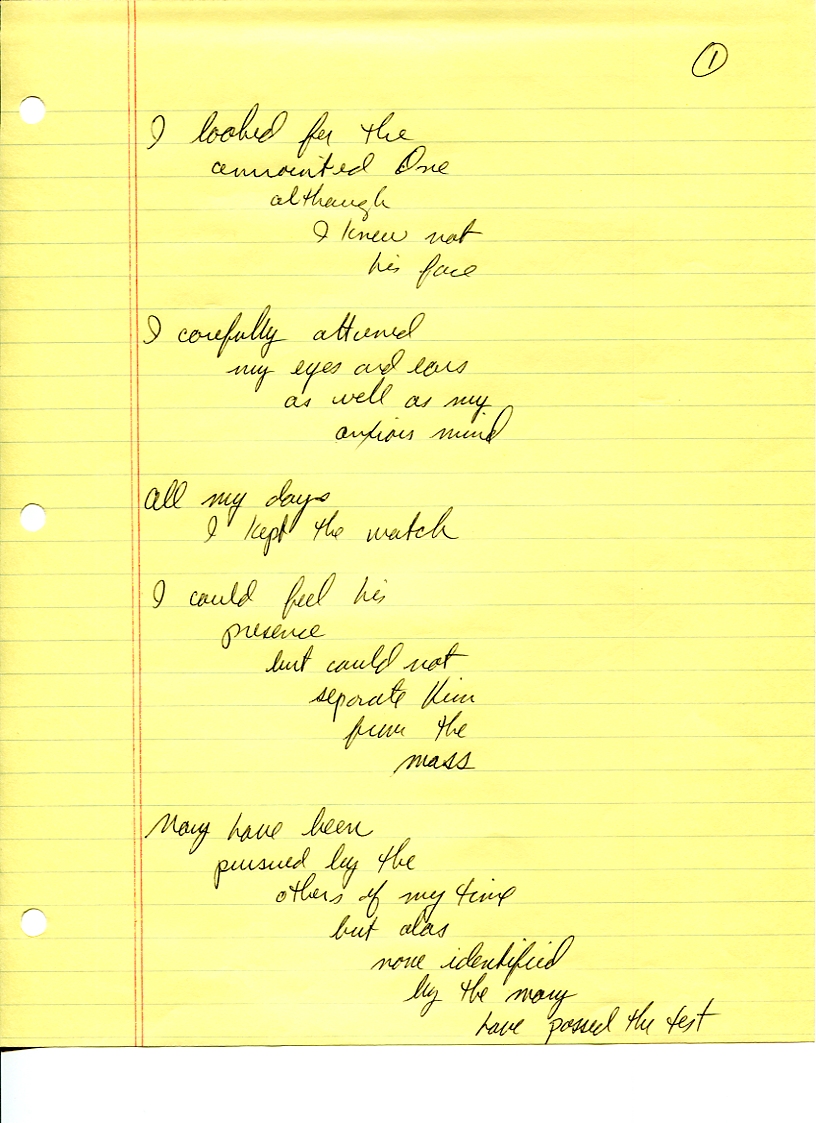 1
I looked for the
annointed One
although
I knew not
his face
I carefully attuned
my eyes and ears
as well as my
anxious mind
All my days
I kept the watch
I could feel his
presence
but could not
separate Him
from the
mass
Many have been
pursued by the
others of my time
but alas
none identified
by the many
have passed the test